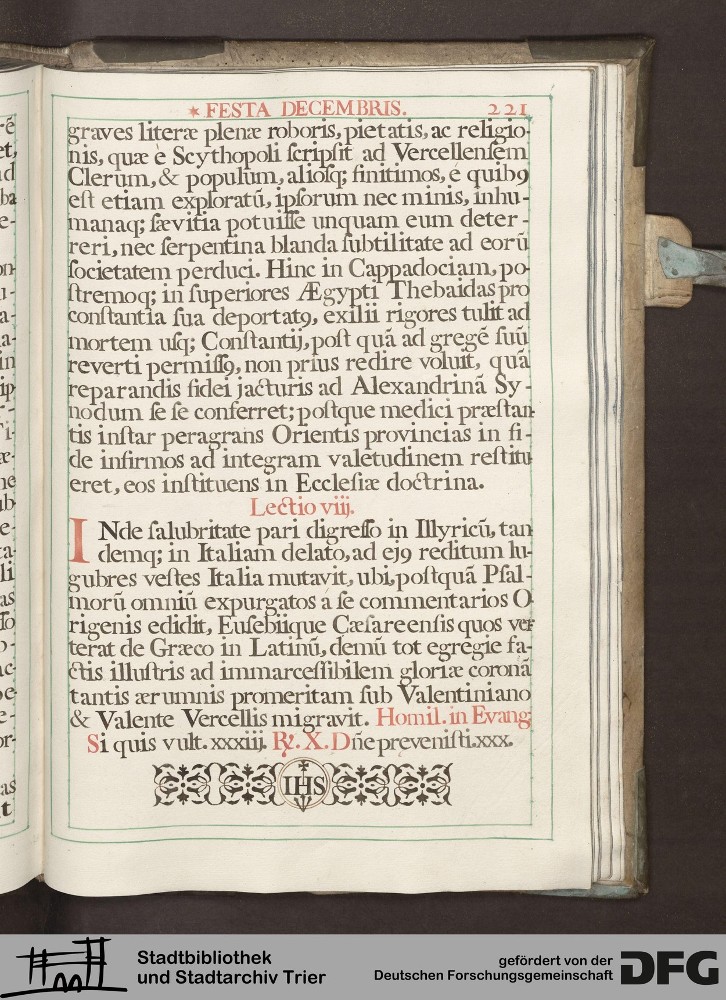 * FESTA DECEMBRIS. 221
graves literæ plenæ roboris, pietatis, ac religio-
nis, quæ è Scythopoli ſcripſit ad Vercellenſem
Clerum, & populum, alioſq; finitimos, é quibꝯ
eſt etiam exploratū, ipſorum nec minis, inhu-
manaq; ſævitia potuiſſe unquam eum deter-
reri, nec ſerpentina blanda ſubtilitate ad eorū
ſocietatem perduci. Hinc in Cappadociam, po-
ſtremoq; in ſuperiores Ægypti Thebaidas pro
conſtantia ſua deportatꝯ, exilii rigores tulit ad
mortem uſq; Conſtantij, poſt quā ad gregē ſuū
reverti permiſſꝯ, non prius redire voluit, quā
reparandis fidei jacturis ad Alexandrinā Sy-
nodum ſe ſe conferret; poſtque medici præſtan
tis inſtar peragrans Orientis provincias in fi-
de infirmos ad integram valetudinem reſtitu
eret, eos inſtituens in Eccleſiæ doctrina.
Lectio viij.
INde ſalubritate pari digreſſo in Illyricū, tan
demq; in Italiam delato, ad ejꝯ reditum lu-
gubres veſtes Italia mutavit, ubi, poſtquā Pſal-
morū omniū expurgatos a ſe commentarios O
rigenis edidit, Euſebiique Cæſareenſis quos ver
terat de Græco in Latinū, demū tot egregie fa-
ctis illuſtris ad immarceſſibilem gloriæ coronā
tantis ærumnis promeritam ſub Valentiniano
& Valente Vercellis migravit. Homil. in Evang:
Si quis vult. xxxiij. ℟. X. Dn̄e preveniſti. xxx.
IHS
et,
Stadtbibliothek
und Stadtarchiv Trier
gefördert von der
Deutschen Forschungsgemeinschaft
DFG